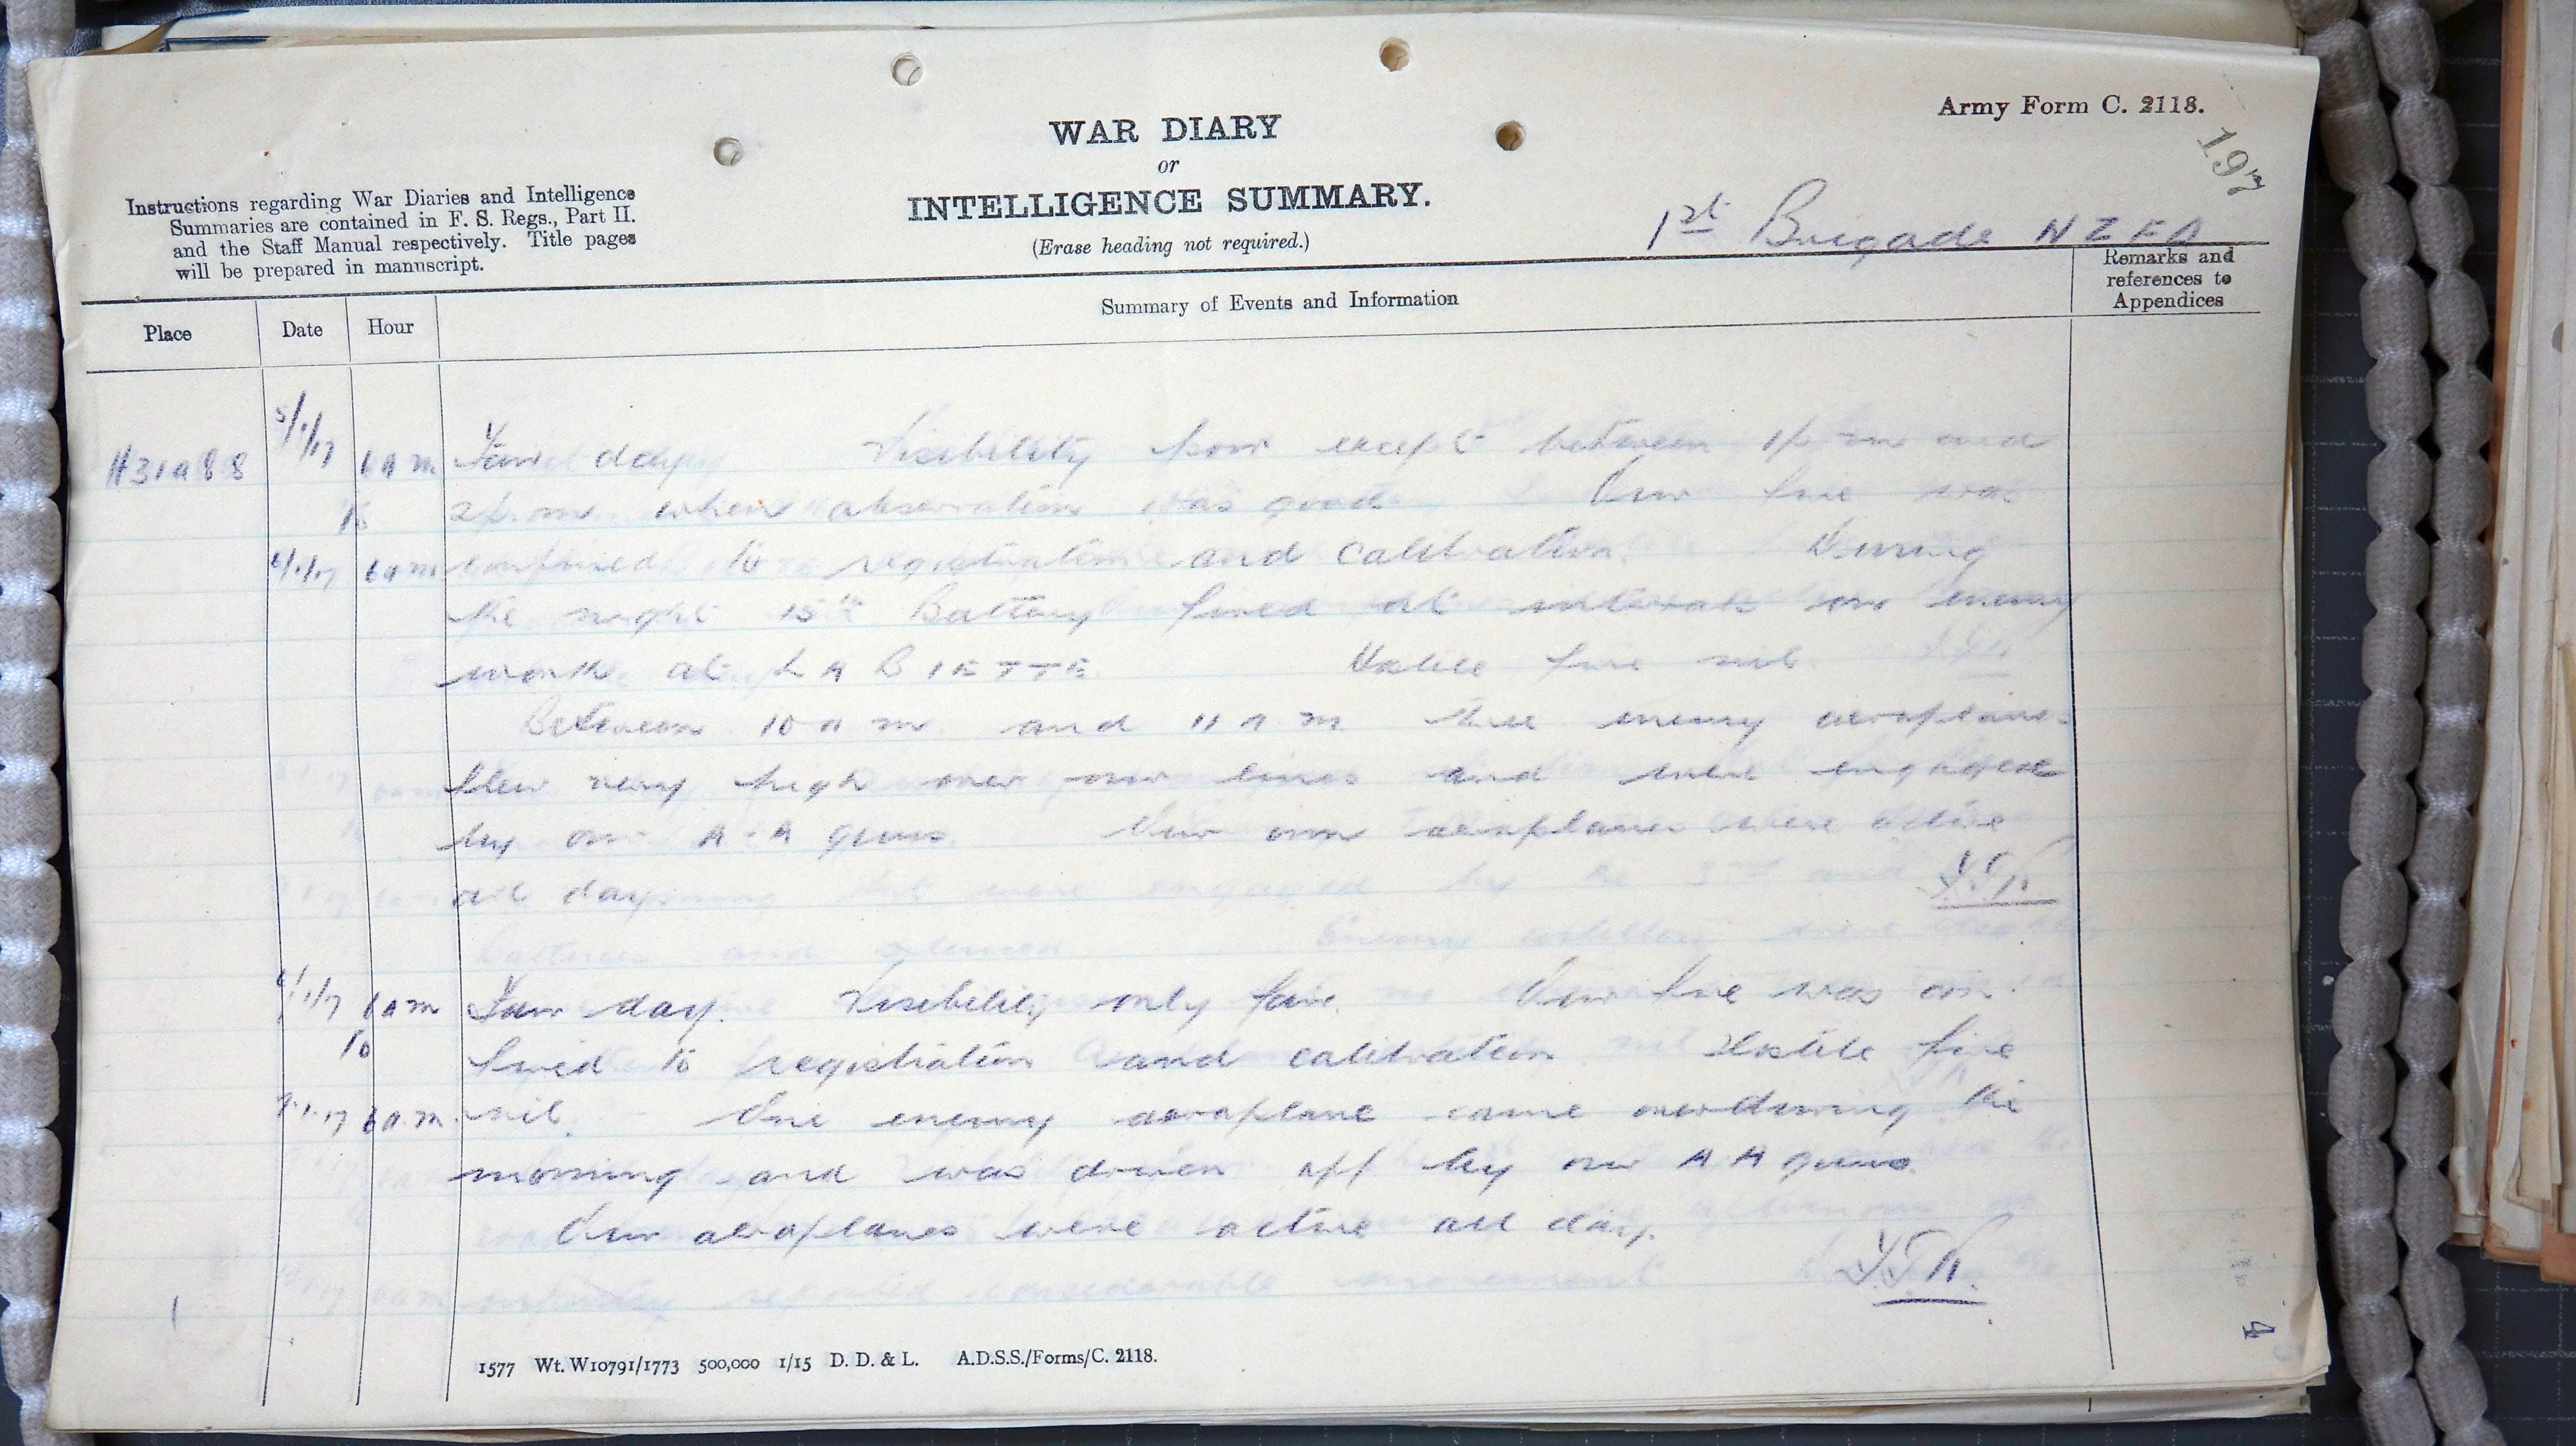 Army Form C. 2118.
197
WAR DIARY
or
INTELLIGENCE SUMMARY.
(Erase heading not required.)
Instructions regarding War Diaries and Intelligence
Summaries are contained in F. S. Regs., Part II.
and the Staff Manual respectively. Title pages
will be prepared in manuscript.
1st Brigade NZFA
Place
Date
Hour
Summary of Events and Information
Remarks and
references to
Appendices
H31a88 5/1/17 6am Fair day Visibility poor except between 1 p.m and
to 2 p.m. when observation was good Our fire was
6/1/17 6am confined to registration and calibration. During
the night 15th Battery fired at intervals on enemy
work at LA BIETTE. Hostile fire nil.
Between 10 a m and 11 a m three enemy aeroplanes
flew very high over our lines and were engaged
by our A-A guns. Our own aeroplanes were active
all day
6/1/17 6am Fair day. Visibility only fair. Our fire was con-
to fined to registration and calibration Hostile fire
7.1.17 6a.m. nil. One enemy aeroplane came over during the
morning and was driven off by our A A guns.
Our aeroplanes were active all day.
4
1577 Wt. W10791/1773 500,000 1/15 D. D. & L. A.D.S.S./Forms/C. 2118.